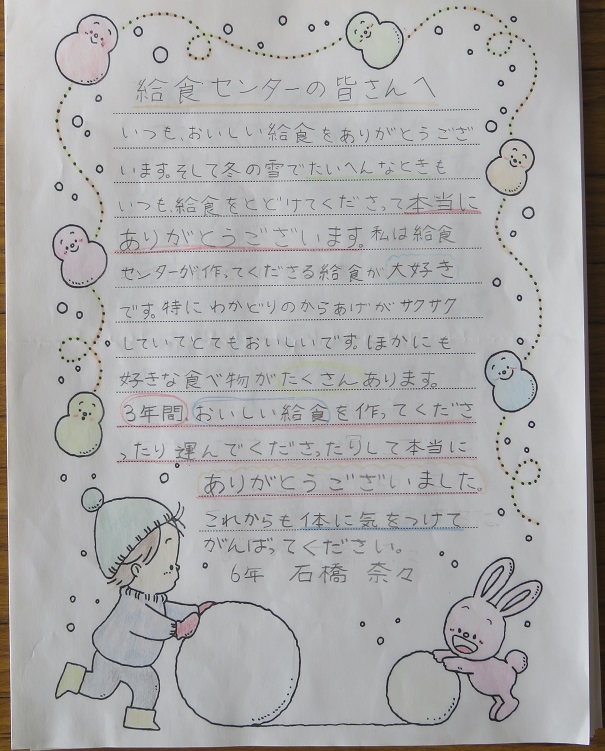 給食センターの皆さんへ
いつも、おいしい給食をありがとうござ
います。そして冬の雪でたいへんなときも
いつも、給食をとどけてくださって本当に
ありがとうございます。私は給食
センターが作ってくださる給食が大好き
です。特にわかどりのからあげがサクサク
していてとてもおいしいです。ほかにも
好きな食べ物がたくさんあります。
3年間、おいしい給食を作ってくださ
ったり運んでくださったりして本当に
ありがとうございました。
これからも体に気をつけて
がんばってください。
6年 石橋 奈々